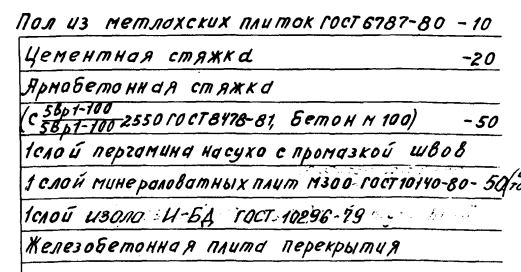 Пол из метлахских плиток ГОСТ 6787-80 -10
Цементная стяжка -20
Армобетонная стяжка
(С 5Вр1-100/5Вр1-100 2550 ГОСТ 8478-81, Бетон М 100) -50
1 слой пергамина насухо с промазкой швов
1 слой минераловатных плит М300 ГОСТ 10140-80 - 50
1 слой изола И-БД ГОСТ 10296-79
Железобетонная плита перекрытия